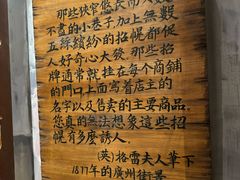 那些狹窄悠長而人數
不盡的小巷子加上無數
五綵繽紛的招幌都促
人好奇心大發 那些招
牌通常就挂在每个商鋪
的門口上面寫着店主的
名字以及售卖的主要商品.
您真的無法想象這些招
幌有多麼誘人.
(英)格雷夫人筆下
1877年的廣州街景